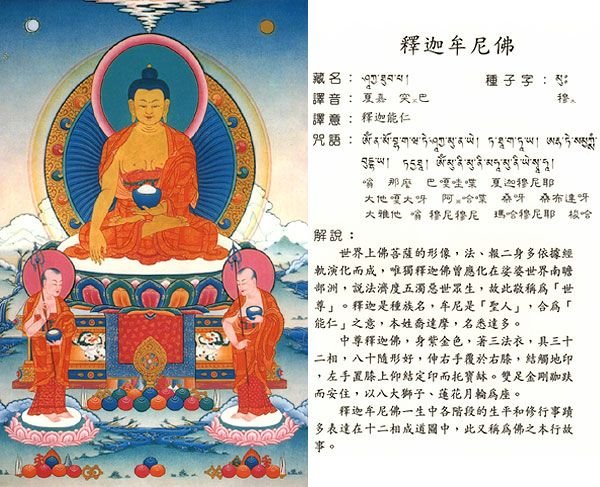 釋迦牟尼佛
藏名：ཤཱཀྱ་ཐུབ་པ། 種子字：མུཿ
譯音：夏嘉 突巴 穆
譯意：釋迦能仁
咒語：ཨོཾ་ན་མོ་བྷ་ག་ཝ་ཏེ་ཤཱཀྱ་མུ་ན་ཡེ། ཏ་ཐཱ་ག་ཏཱ་ཡ།
བུདྡྷ་ཡ། ཏདྱཐཱ། ཨོཾ་མུ་ནི་མུ་ནི་མ་ཧཱ་མུ་ནི་ཡེ་སྭཱ་ཧཱ།
嗡 那麼 巴嘎哇喋 夏迦穆尼耶
大他嘎大呀 阿哈喋 桑呀 桑布達呀
大雅他 嗡 穆尼穆尼 瑪哈穆尼耶 梭哈
解說：
世界上佛菩薩的形像，法、報二身多依據經
軌演化而成，唯獨釋迦佛曾應化在娑婆世界南瞻
部洲，説法濟度五濁惡世眾生，故此敬稱爲「世
尊」。釋迦是種族名，牟尼是「聖人」，合爲「
能仁」之意，本姓喬達摩，名悉達多。
中尊釋迦佛，身紫金色，著三法衣，具三十
二相，八十隨形好，伸右手覆於右膝，結觸地印
，左手置膝上仰結定印而托寶缽。雙足金剛跏趺
而安住，以八大獅子、蓮花月輪爲座。
釋迦牟尼佛一生中各階段的生平和修行事蹟
多表達在十二相成道圖中，此又稱爲佛之本行故
事。